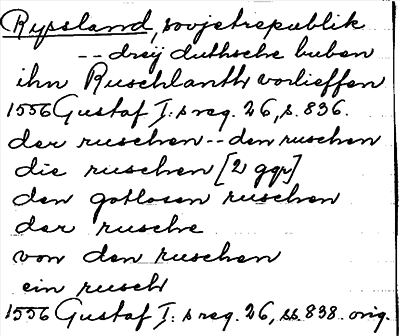 Ryssland, sovjetrepublik
-- dreÿ duthsche buben
ihn Ruschlanth vorlieffen
1556 Gustaf I:s reg. 26, s. 836.
der ruschen -- den ruschen
die ruschen [2 ggr]
den gotlosen ruschen
der rusche
von den ruschen
ein rusch
1556 Gustaf I:s reg. 26, ss. 838. orig.